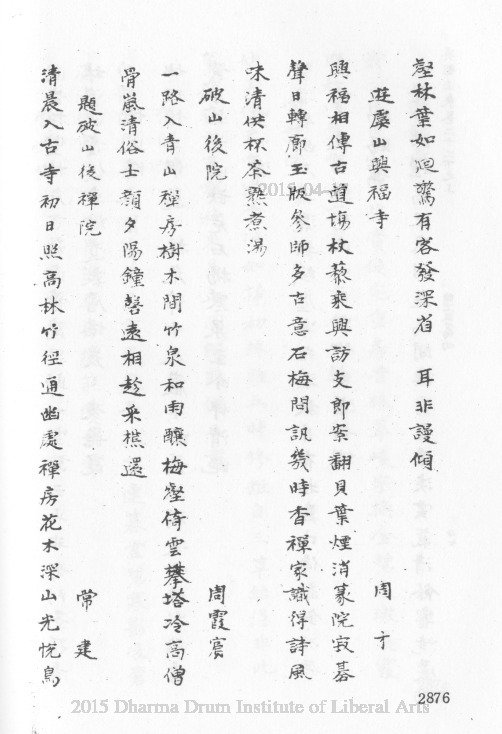 壑林葉如迴驚有客發深省 耳非謾傾
遊虞山興福寺 周才
興福相傳古道塲杖藜乘興訪支郎案翻貝葉煙消篆院寂碁
聲日轉廊玉版參師多古意石梅問訊幾時香禪家識得詩風
味清供杯茶點煮湯
破山後院 周霞賓
一路入青山禪房樹木間竹泉和雨釀梅壑倚雲攀塔冷高僧
骨嵐清俗士顏夕陽鐘磬遠相趁采樵還
題破山後禪院 常建
清晨入古寺初日照高林竹徑通幽處禪房花木深山光悅鳥
2876
2015 Dharma Drum Institute of Liberal Arts